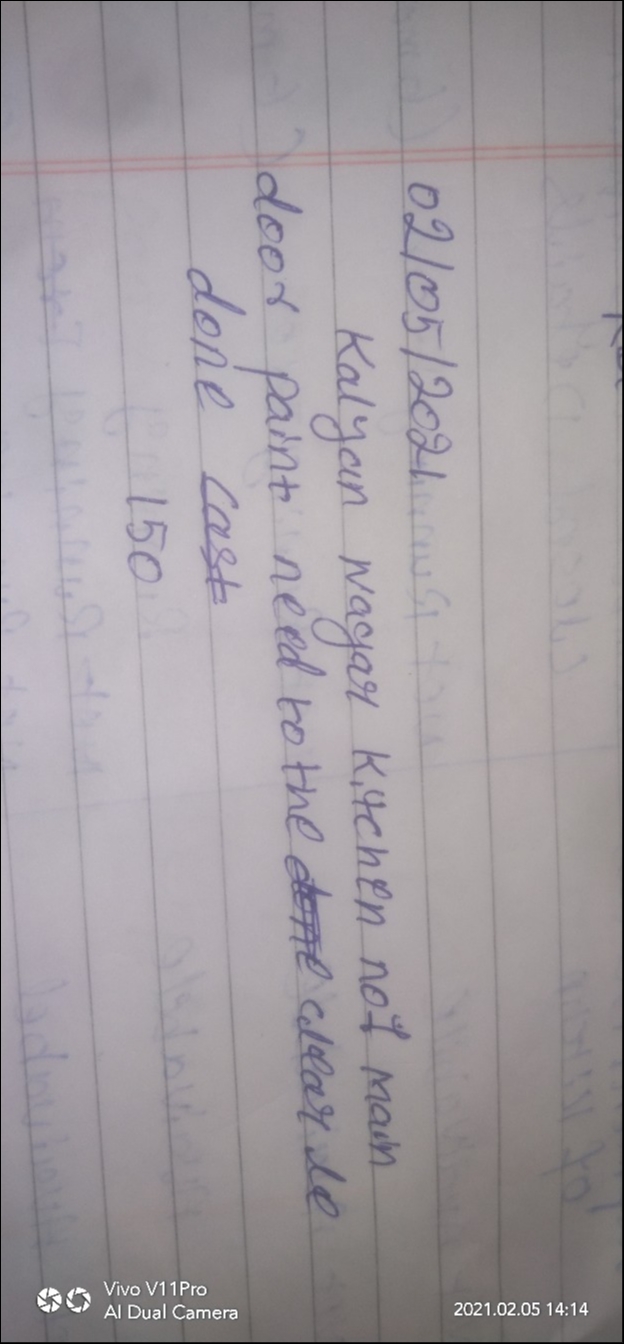 02/05/2021
Kalyan Nagar Kitchen no1 main
door paint need to the done clear de
done cast
150
Vivo V11Pro
AI Dual Camera
2021.02.05 14:14